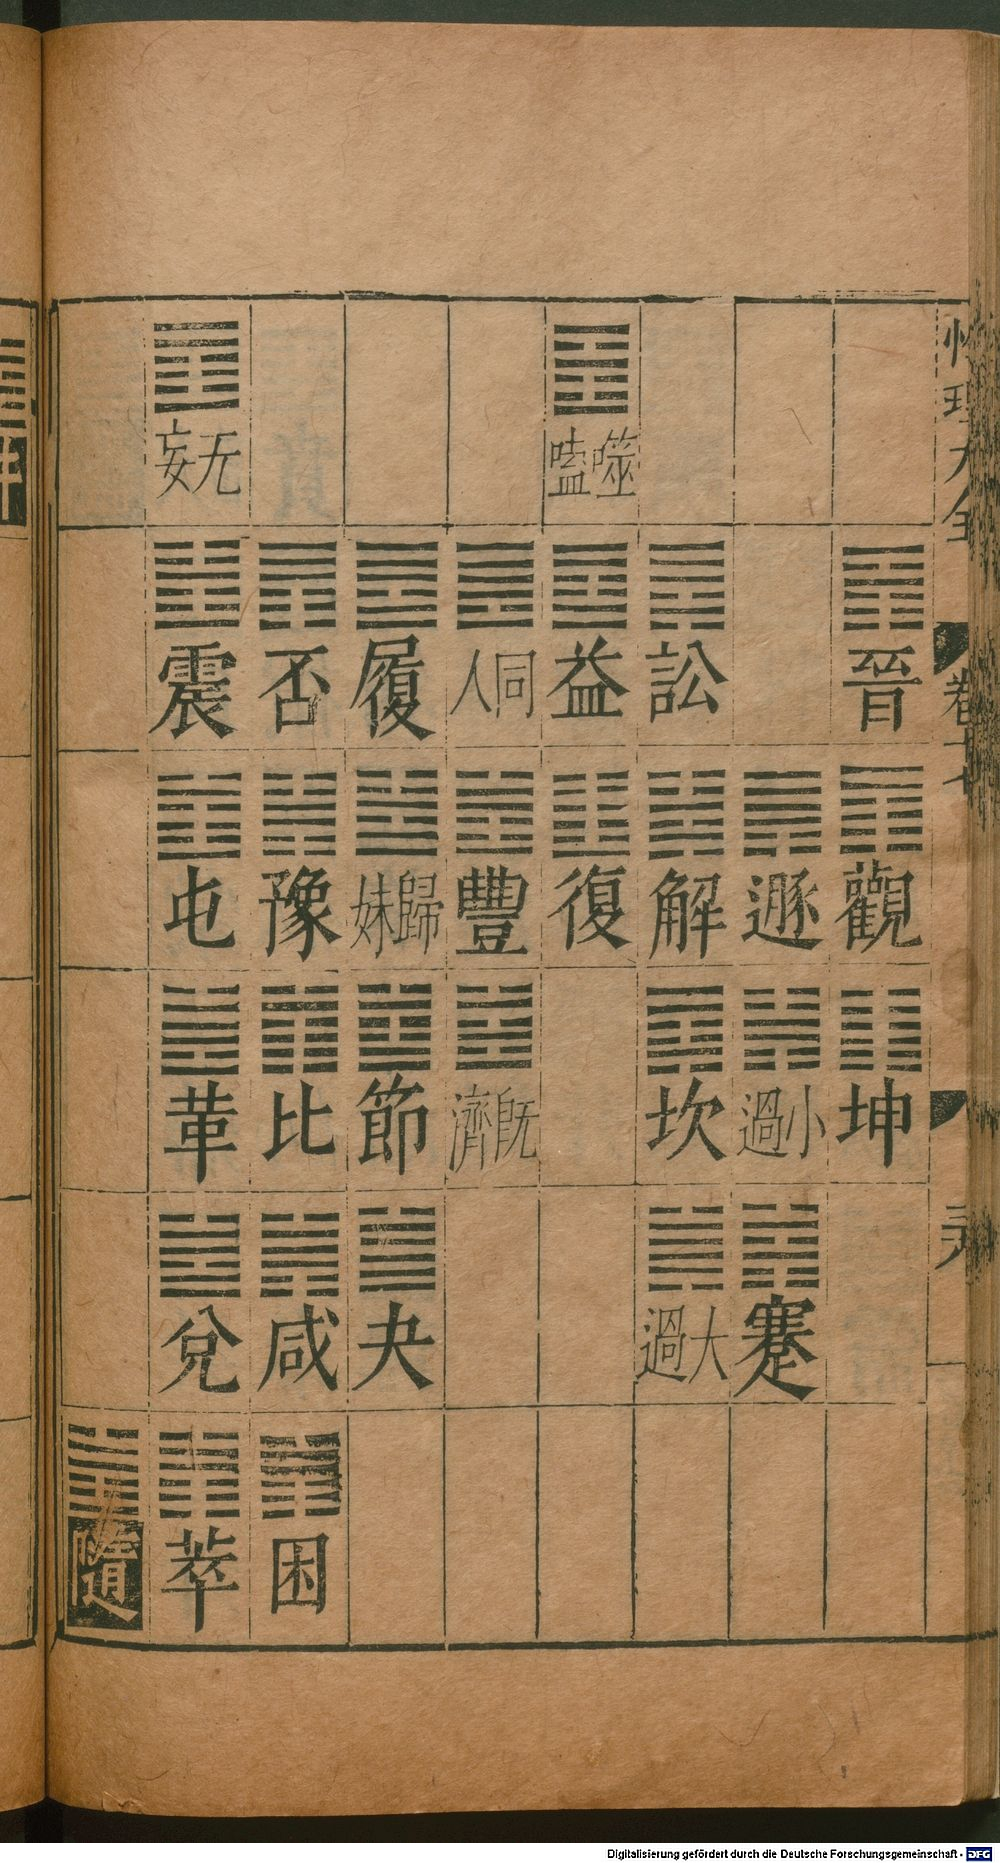 性理大全
晉 觀 坤
遯 小過 蹇
訟 解 坎 大過
噬嗑 益 復
同人 豐 旣濟
履 歸妹 節 夬
否 豫 比 咸 困
无妄 震 屯 革 兌 萃
隨
Digitalisierung gefördert durch die Deutsche Forschungsgemeinschaft - DFG